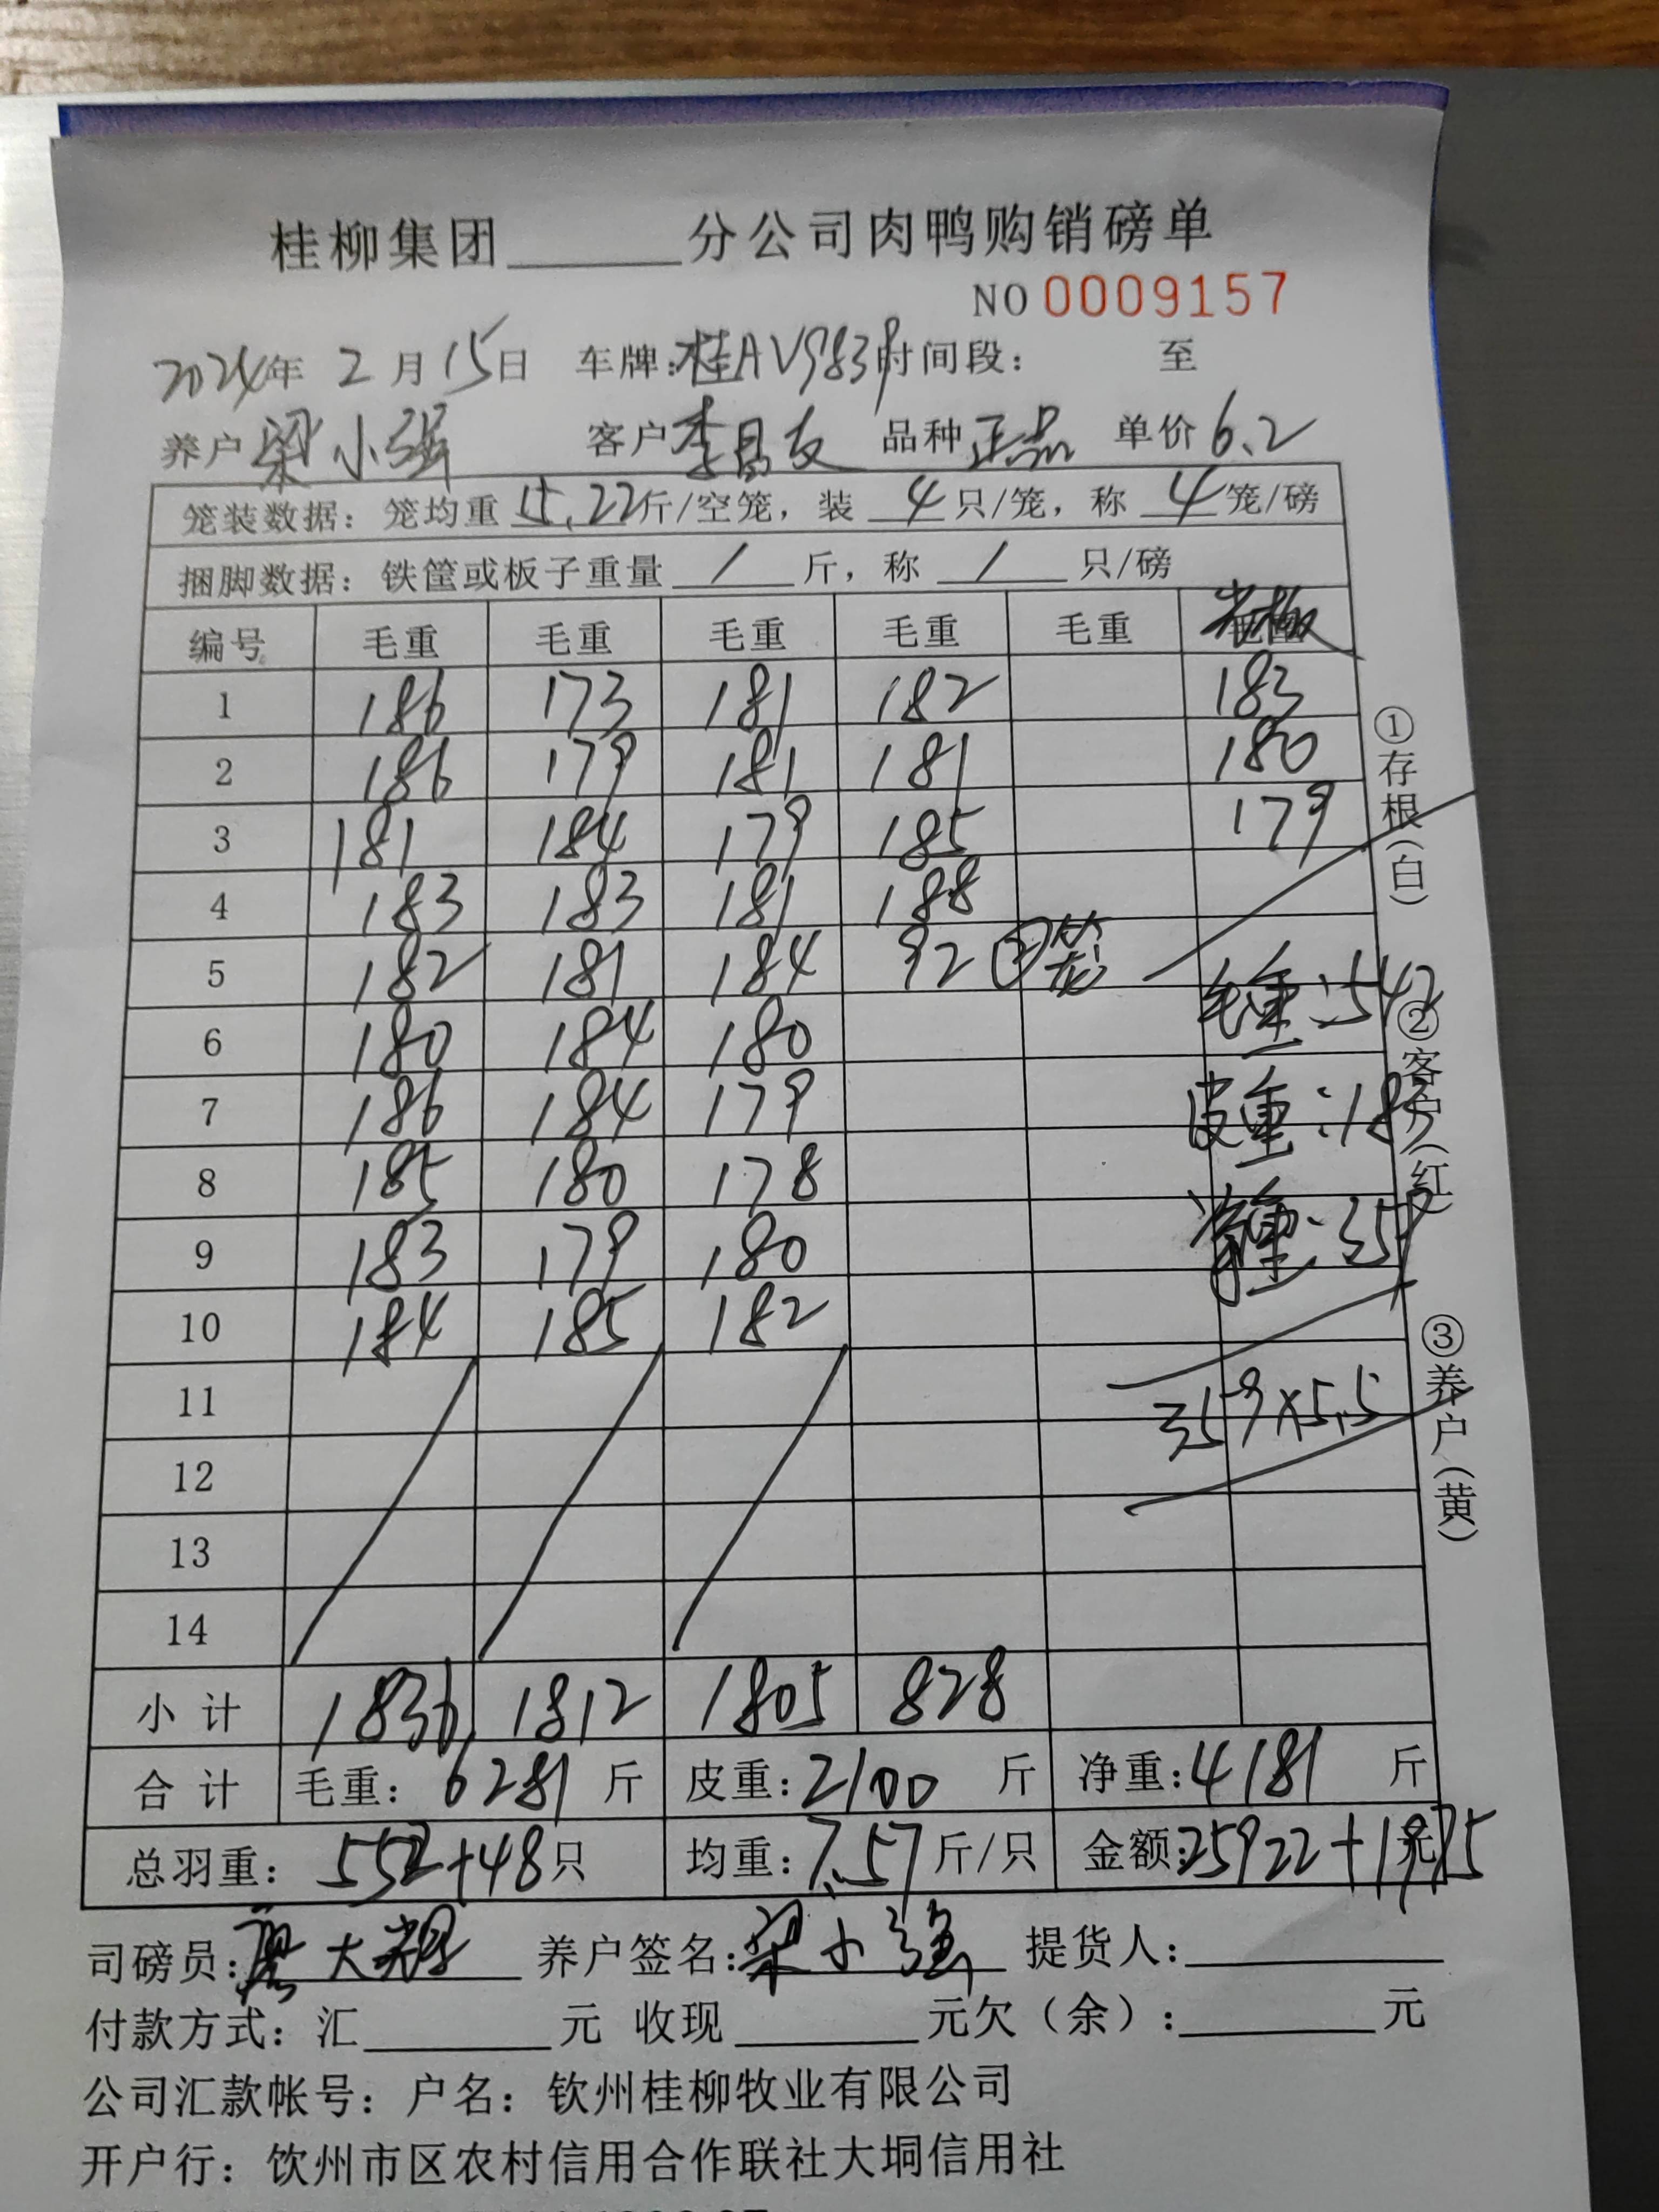 桂柳集团______分公司肉鸭购销磅单
NO 0009157
2024年 2 月 15日 车牌:桂AV9839 时间段: 至
养户 梁小强 客户 李昌友 品种 正品 单价 6.2
笼装数据: 笼均重 15.22斤/空笼, 装 4 只/笼, 称 4 笼/磅
捆脚数据: 铁筐或板子重量 / 斤, 称 / 只/磅
编号 毛重 毛重 毛重 毛重 毛重
1 186 173 181 182 183
2 186 179 181 181 180
3 181 184 179 185 179
4 183 183 181 188
5 182 181 184 92 ②笼
6 180 184 180
7 186 184 179
8 185 180 178
9 183 179 180
10 184 185 182
11
12
13
14
毛重:542
皮重:183
净重:359
359×5.5
小计 1836 1812 1805 828
合计 毛重: 6281 斤 皮重:2100 斤 净重:4181 斤
总羽重: 552+48只 均重:7.57斤/只 金额:25922+1975元
司磅员: 养户签名:梁小强 提货人:
付款方式: 汇______元 收现______元欠（余）:______元
公司汇款帐号: 户名: 钦州桂柳牧业有限公司
开户行: 饮州市区农村信用合作联社大垌信用社
①存根（白）
②客户（红）
③养户（黄）